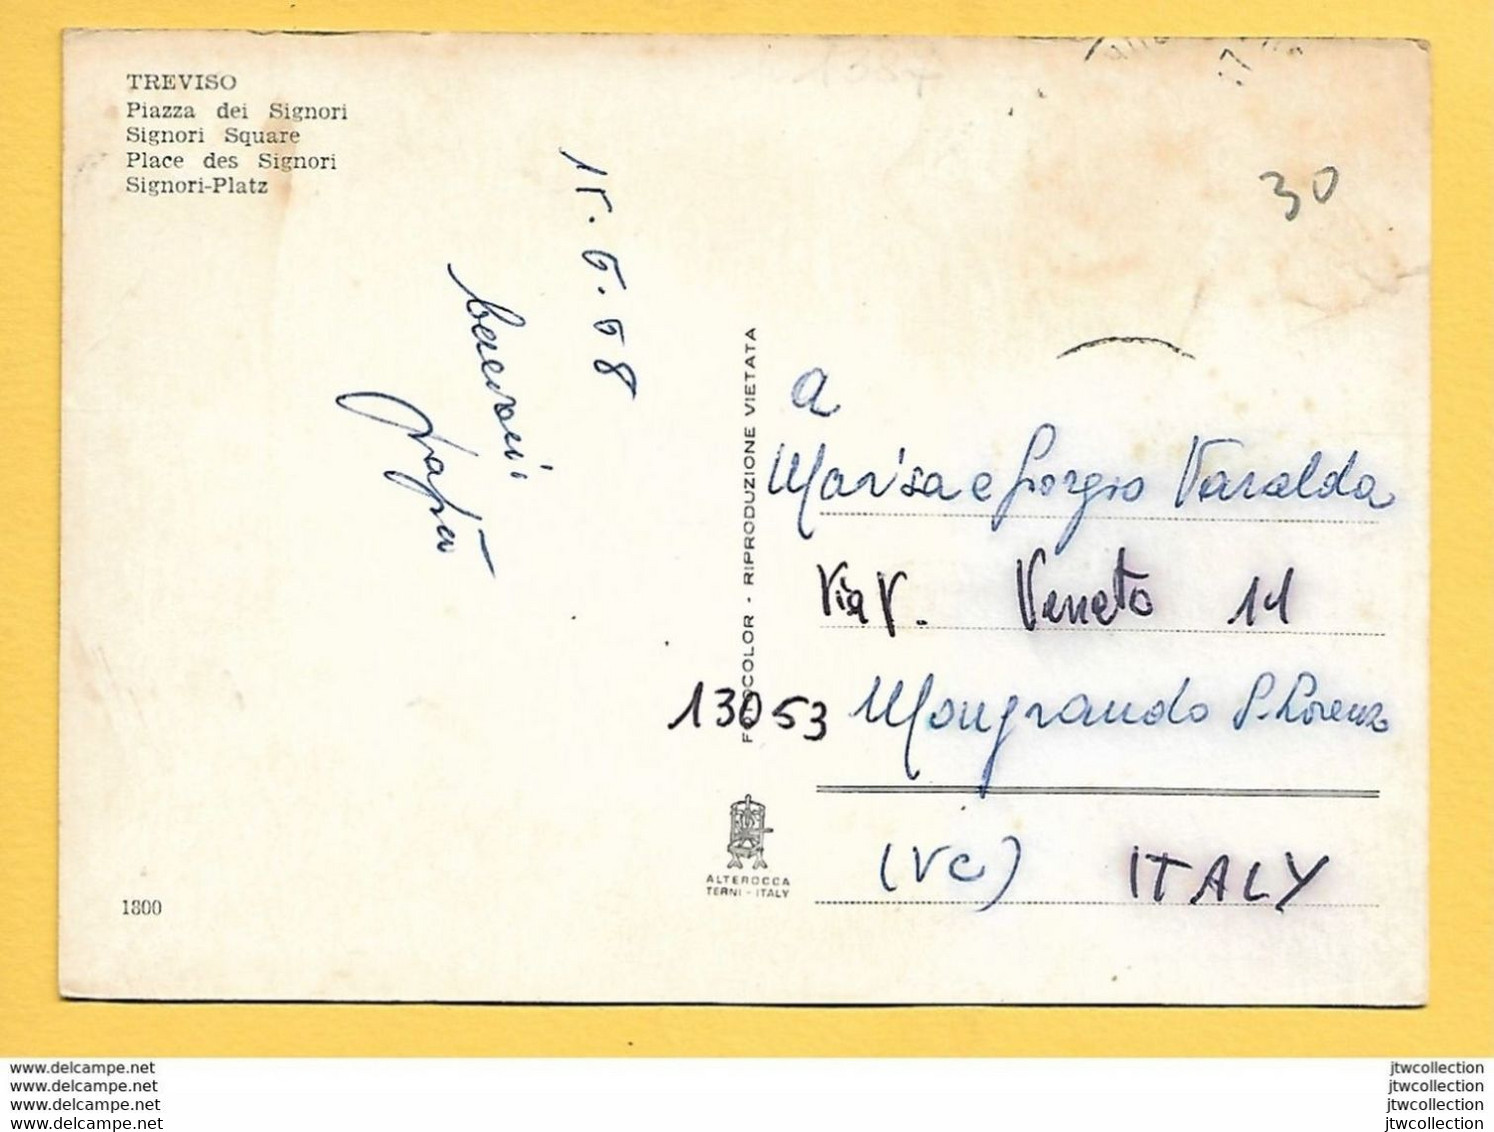 TREVISO
Piazza dei Signori
Signori Square
Place des Signori
Signori-Platz
15.6.68
bacioni
30
FOTOCOLOR - RIPRODUZIONE VIETATA
a
Marisa e Giorgio Varalda
Via V. Veneto 11
13053 Mongrando S. Lorenzo
(VC) ITALY
ALTEROCCA
TERNI - ITALY
1800
www.delcampe.net
www.delcampe.net
www.delcampe.net
www.delcampe.net
jtwcollection
jtwcollection
jtwcollection
jtwcollection